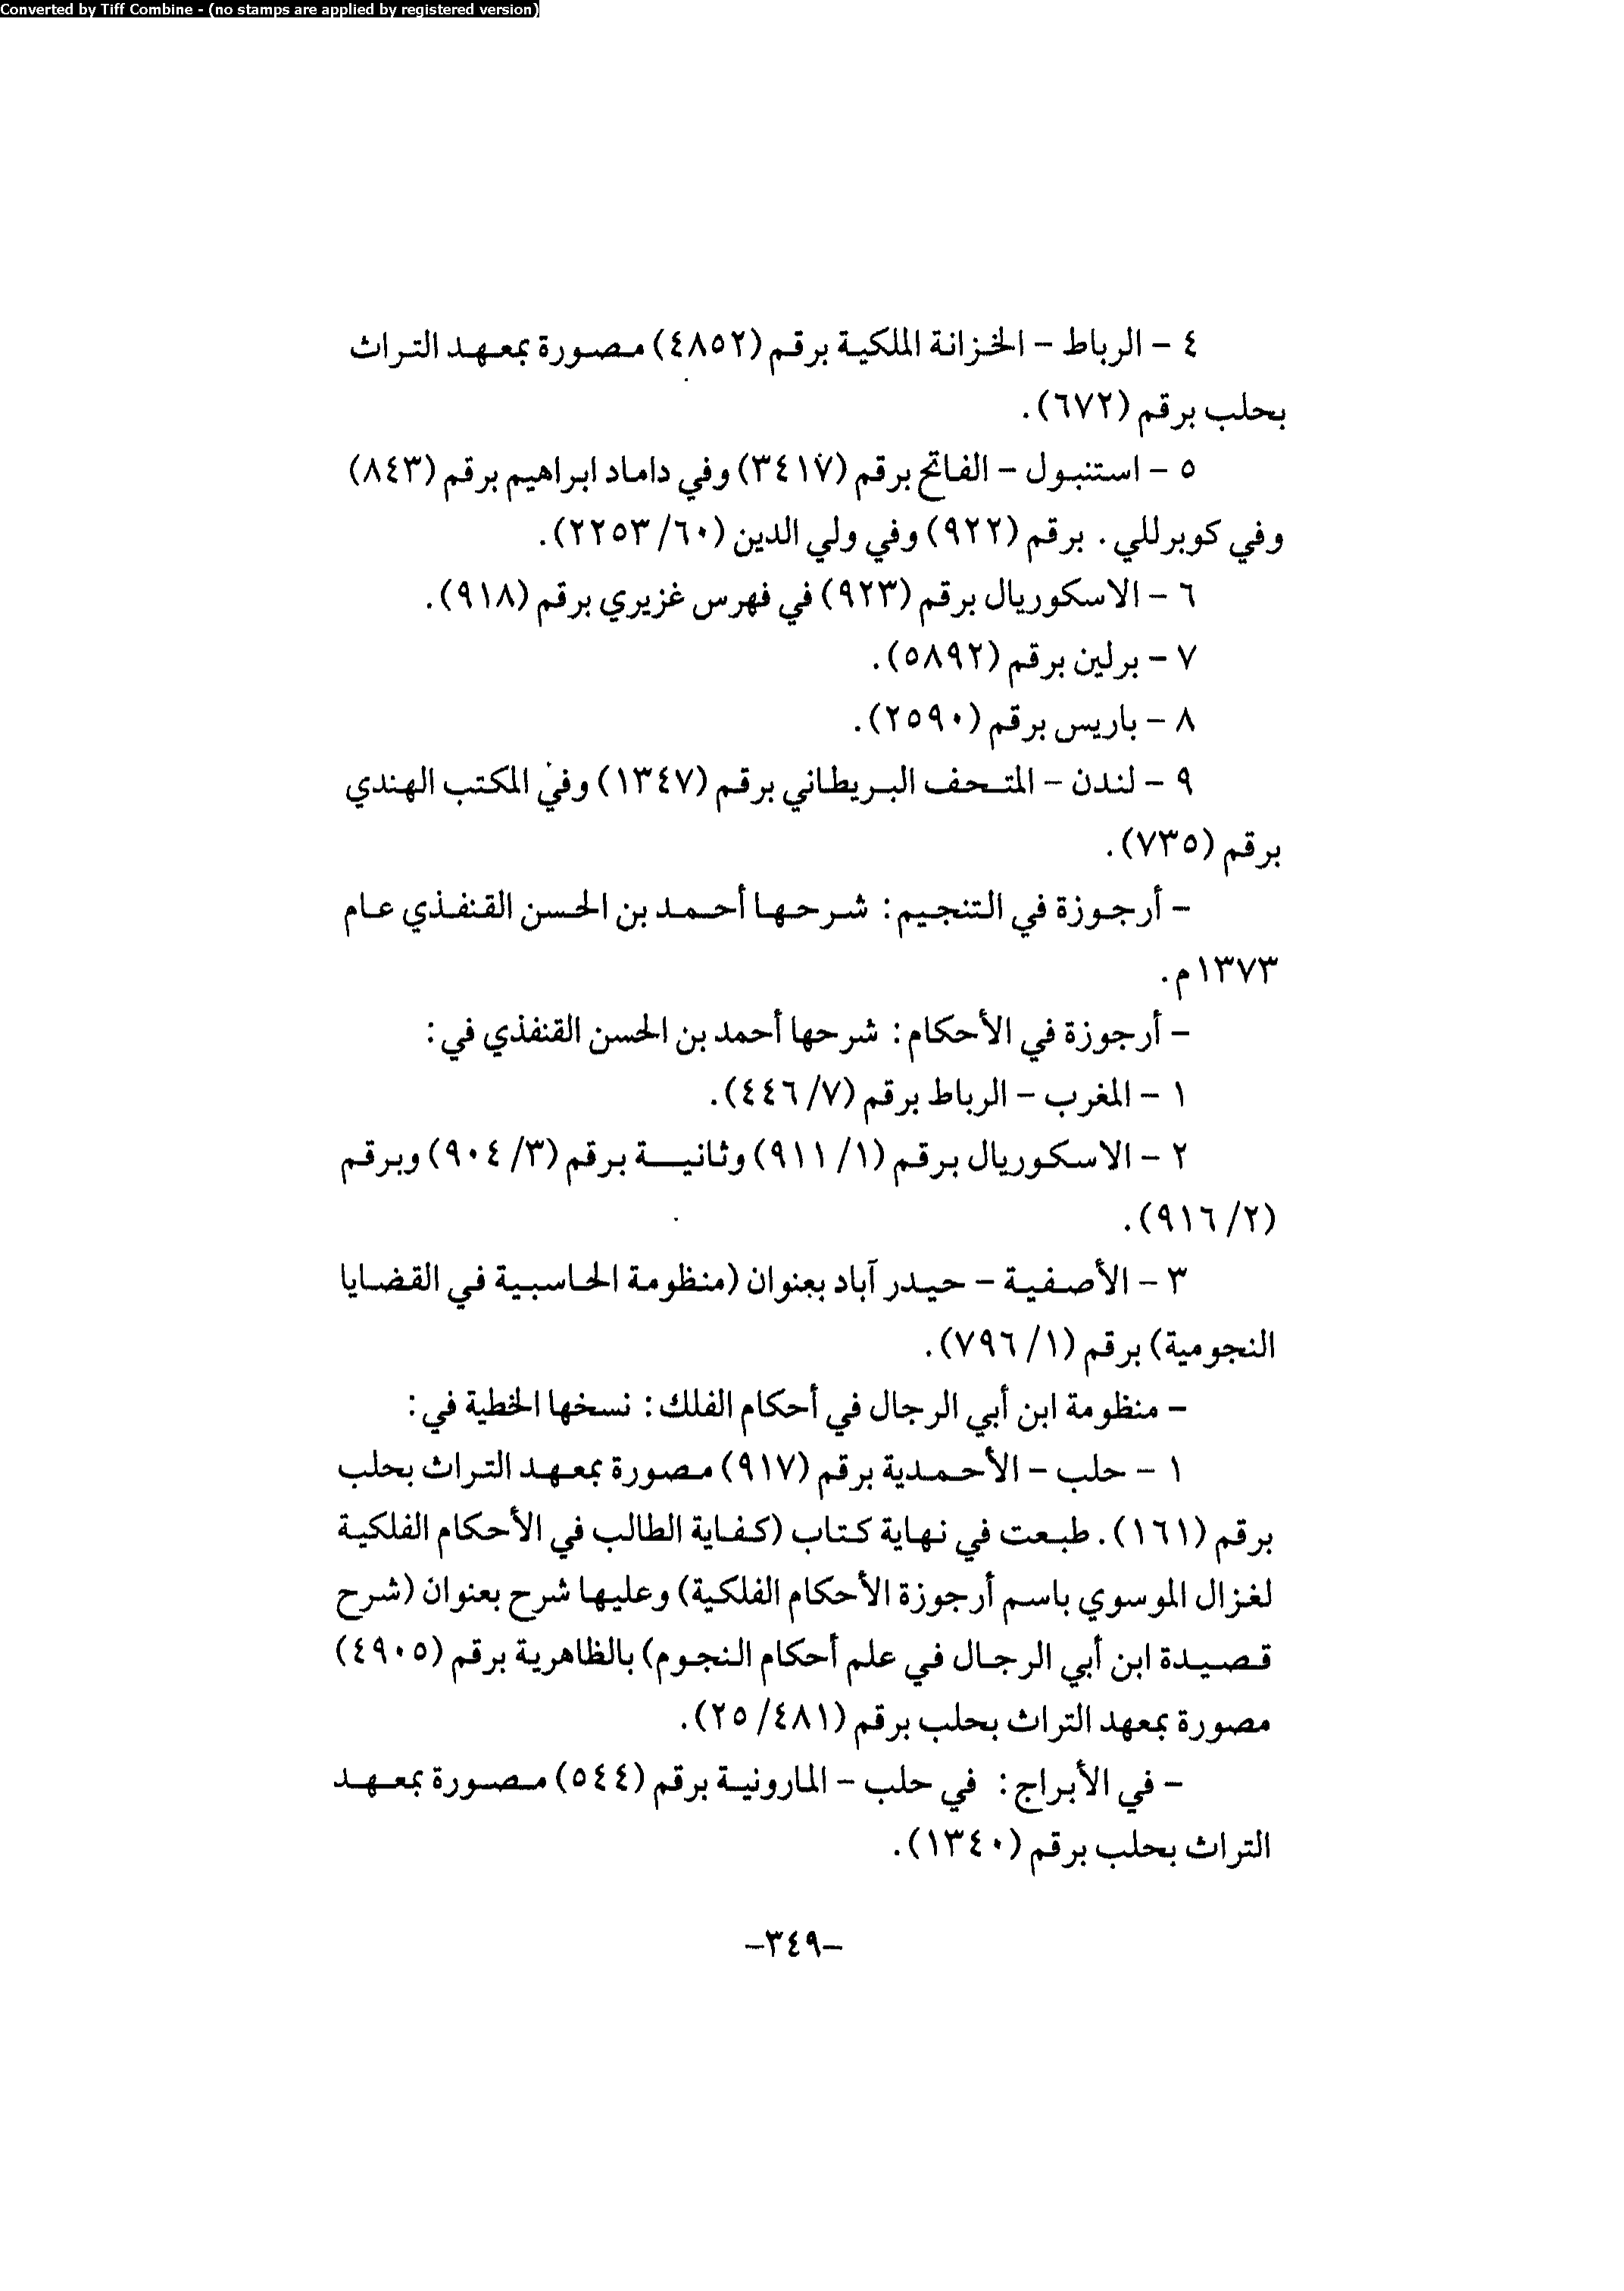 Converted by Tiff Combine - (no stamps are applied by registered version)
٤ - الرباط - الخزانة الملكية برقم (٤٨٥٢) مصورة بمعهد التراث
بحلب برقم (٦٧٢).
٥ - استنبول - الفاتح برقم (٣٤١٧) وفي داماد ابراهيم برقم (٨٤٣)
وفي كوبرللي. برقم (٩٢٢) وفي ولي الدين (٢٢٥٣/٦٠).
٦ - الاسكوريال برقم (٩٢٣) في فهرس غزيري برقم (٩١٨).
٧ - برلين برقم (٥٨٩٢).
٨ - باريس برقم (٢٥٩٠).
٩ - لندن - المتحف البريطاني برقم (١٣٤٧) وفي المكتب الهندي
برقم (٧٣٥).
- أرجوزة في التنجيم: شرحها أحمد بن الحسن القنفذي عام
١٣٧٣م.
- أرجوزة في الأحكام: شرحها أحمد بن الحسن القنفذي في:
١ - المغرب - الرباط برقم (٤٤٦/٧).
٢ - الاسكوريال برقم (٩١١/١) وثانية برقم (٩٠٤/٣) وبرقم
(٩١٦/٢).
٣ - الأصفية - حيدر آباد بعنوان (منظومة الحاسبية في القضايا
النجومية) برقم (٧٩٦/١).
- منظومة ابن أبي الرجال في أحكام الفلك: نسخها الخطية في:
١ - حلب - الأحمدية برقم (٩١٧) مصورة بمعهد التراث بحلب
برقم (١٦١). طبعت في نهاية كتاب (كفاية الطالب في الأحكام الفلكية
لغزال الموسوي باسم أرجوزة الأحكام الفلكية) وعليها شرح بعنوان (شرح
قصيدة ابن أبي الرجال في علم أحكام النجوم) بالظاهرية برقم (٤٩٠٥)
مصورة بمعهد التراث بحلب برقم (٢٥/٤٨١).
- في الأبراج: في حلب - المارونية برقم (٥٤٤) مصورة بمعهد
التراث بحلب برقم (١٣٤٠).
-٣٤٩-